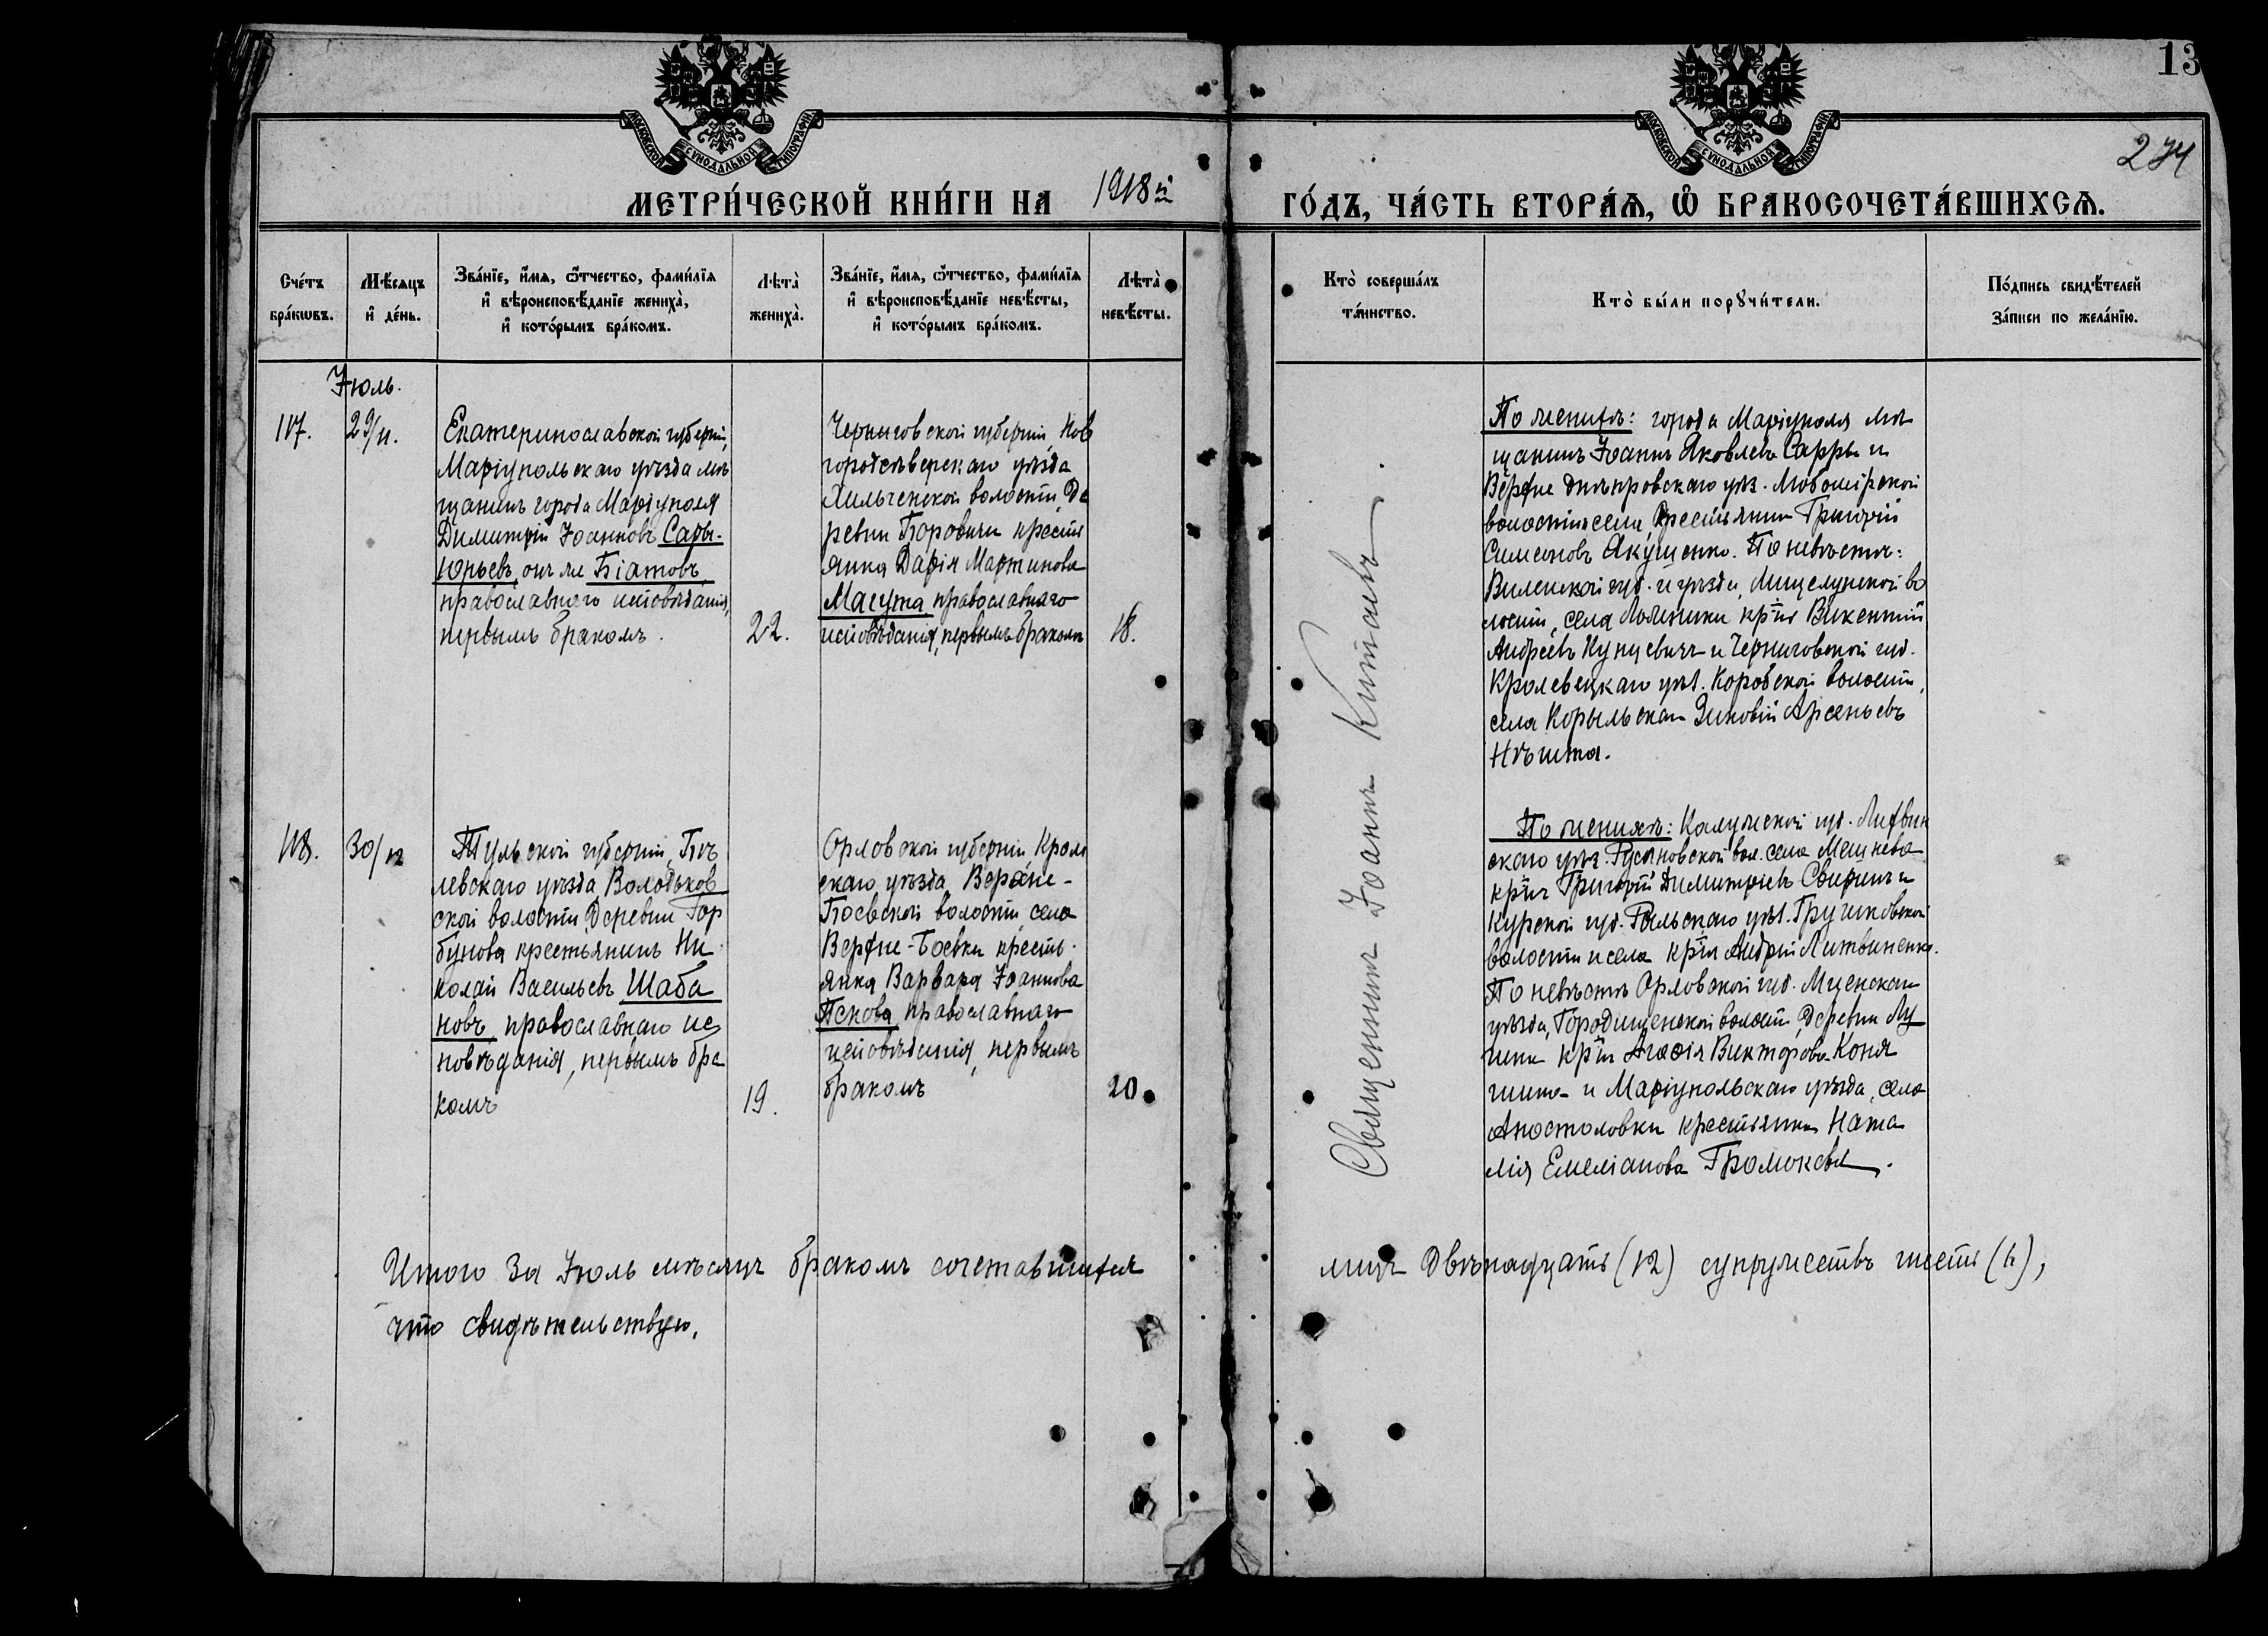 13
274
МОСКОВСКОЙ СѴНОДАЛЬНОЙ ТИПОГРАФІИ
МОСКОВСКОЙ СѴНОДАЛЬНОЙ ТИПОГРАФІИ
МЕТРИ́ЧЕСКОЙ КНИ́ГИ НА 1918й ГО́ДЪ, ЧА́СТЬ ВТОРА́Ѧ, Ѽ БРАКОСОЧЕТА́ВШИХСѦ.
Сче́тъ
бра́кѡвъ.
Мѣ́сяцъ
и҆ де́нь.
Зва́нїе, и҆́мѧ, ѻ҆́тчество, фами́лїѧ
и҆ вѣроисповѣ́данїе жениха̀,
и҆ кото́рымъ бра́комъ.
Лѣта̀
жениха̀.
Зва́нїе, и҆́мѧ, ѻ҆́тчество, фами́лїѧ
и҆ вѣроисповѣ́данїе невѣ́сты,
и҆ кото́рымъ бра́комъ.
Лѣта̀
невѣ́сты.
Кто̀ соверша́лъ
та́инство.
Кто̀ бы́ли порꙋчи́тели.
По́дпись свидѣ́телей
за́писи по жела́нїю.
Іюль.
117.
29/11.
Екатеринославской губерніи,
Маріупольскаго уѣзда мѣ
щанинъ города Маріуполя
Димитрій Іоанновъ Сары-
Юрьевъ, онъ же Біатовъ,
православнаго исповѣданія,
первымъ бракомъ.
22.
Черниговской губерніи, Нов
городсѣверскаго уѣзда
Хильченской волости, Де
ревни Боровичи крестья
янка Дарія Мартинова
Магута православнаго
исповѣданія, первымъ бракомъ
18.
Священникъ Іоаннъ Китаевъ
По женихѣ: города Маріуполя мѣ
щанинъ Іоаннъ Яковлевъ Сарры и
Верхне Днѣпровскаго уѣз. Любомірской
волости и села крестьянинъ Григорій
Симеоновъ Якущенко. По невѣстѣ:
Виленской губ. и уѣзда, во
лости, села кр-нъ Викентій
Андреевъ Кунцевичъ и Черниговской губ.
Кролевецкаго уѣз. Коробской волости,
села Зиновій Арсеньевъ
Нѣшта.
118.
30/12
Тульской губерніи, Бѣ
левскаго уѣзда Володьков
ской волости, Деревни Гор
бунова крестьянинъ Ни
колай Васильевъ Шаба
новъ, православнаго ис
повѣданія, первымъ бра
комъ
19.
Орловской губерніи, Кром
скаго уѣзда, Верхне-
Боевской волости, села
Верхне-Боевки кресть-
янка Варвара Іоаннова
Пенова, православнаго
исповѣданія, первымъ
бракомъ
20.
По женихѣ: Калужской губ. Лихвин
скаго уѣз. Русановской вол. села Мешнева
кр-нъ Григорій Димитріевъ Свиринъ и
Курской губ. Рыльскаго уѣз. Грушковской
волости и села кр-нъ Андрей Литвиненко.
По невѣстѣ Орловской губ. Мценскаго
уѣзда, Городищенской волости, Деревни Лу
шки кр-ка Агафія Викторова Коня
и Маріупольскаго уѣзда, села
Апостоловки крестьянка Ната
лія Емеліанова
Итого За Іюль мѣсяцъ бракомъ сочетавшихся лицъ Двѣнадцать (12) супружествъ шесть (6),
что свидѣтельствую.